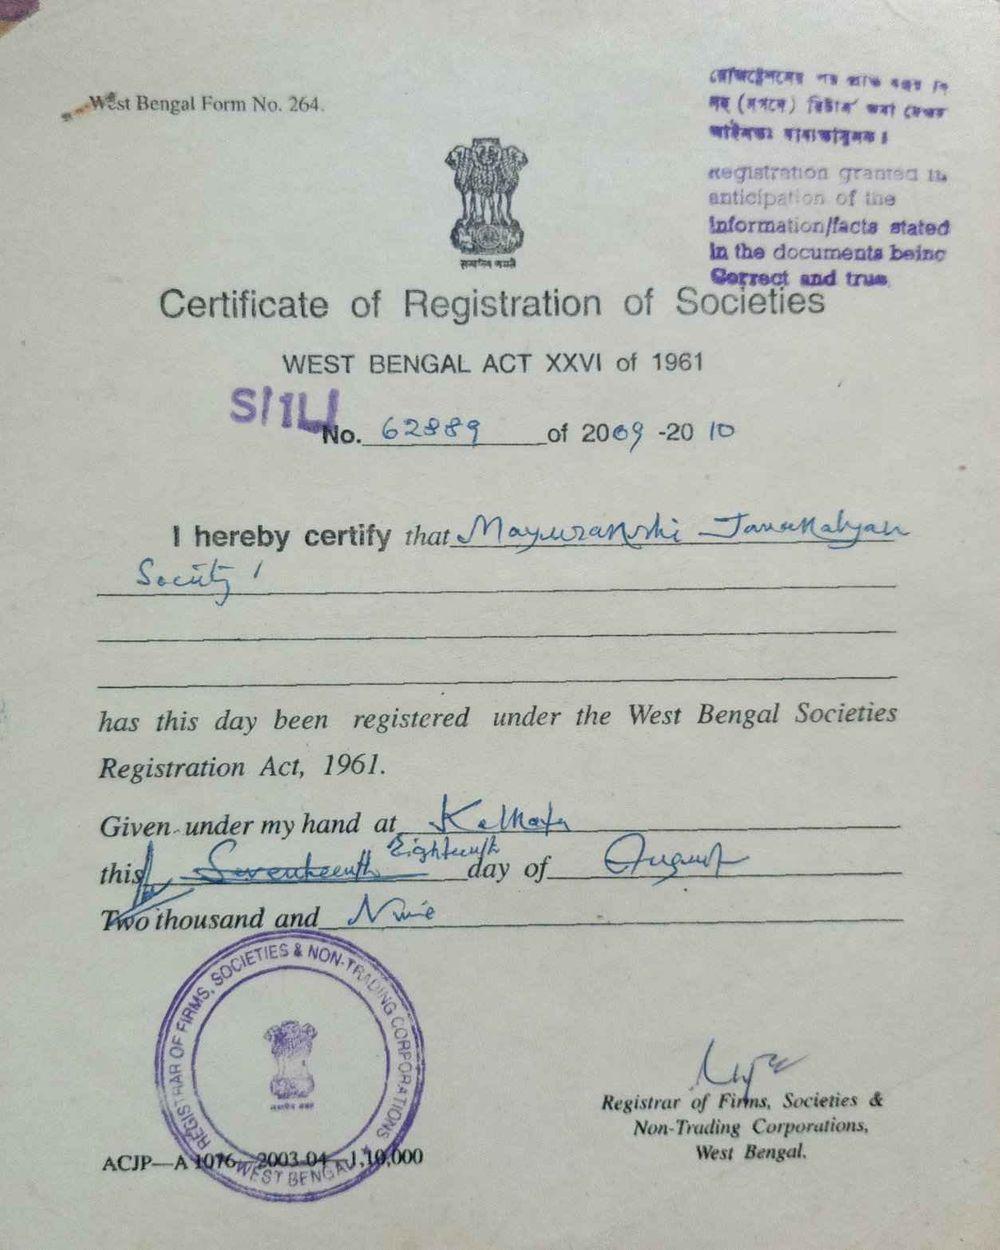 West Bengal Form No. 264.
রেজিস্ট্রেশনের পর প্রতি বৎসর
(নবম) রিটার্ন জমা দেওয়া
আইনতঃ বাধ্যতামূলক।
Registration granted in
anticipation of the
Information/facts stated
In the documents being
Correct and true.
सत्यमेव जयते
Certificate of Registration of Societies
WEST BENGAL ACT XXVI of 1961
S/1L/
No. 62889 of 2009 -2010
I hereby certify that Mayurakshi Janakalyan
Society'
has this day been registered under the West Bengal Societies
Registration Act, 1961.
Given under my hand at Kolkata
this Seventeenth Eighteenth day of August
Two thousand and Nine
REGISTRAR OF FIRMS, SOCIETIES & NON-TRADING CORPORATIONS
WEST BENGAL
Registrar of Firms, Societies &
Non-Trading Corporations,
West Bengal.
ACJP—A 1076—2003-04—1,10,000